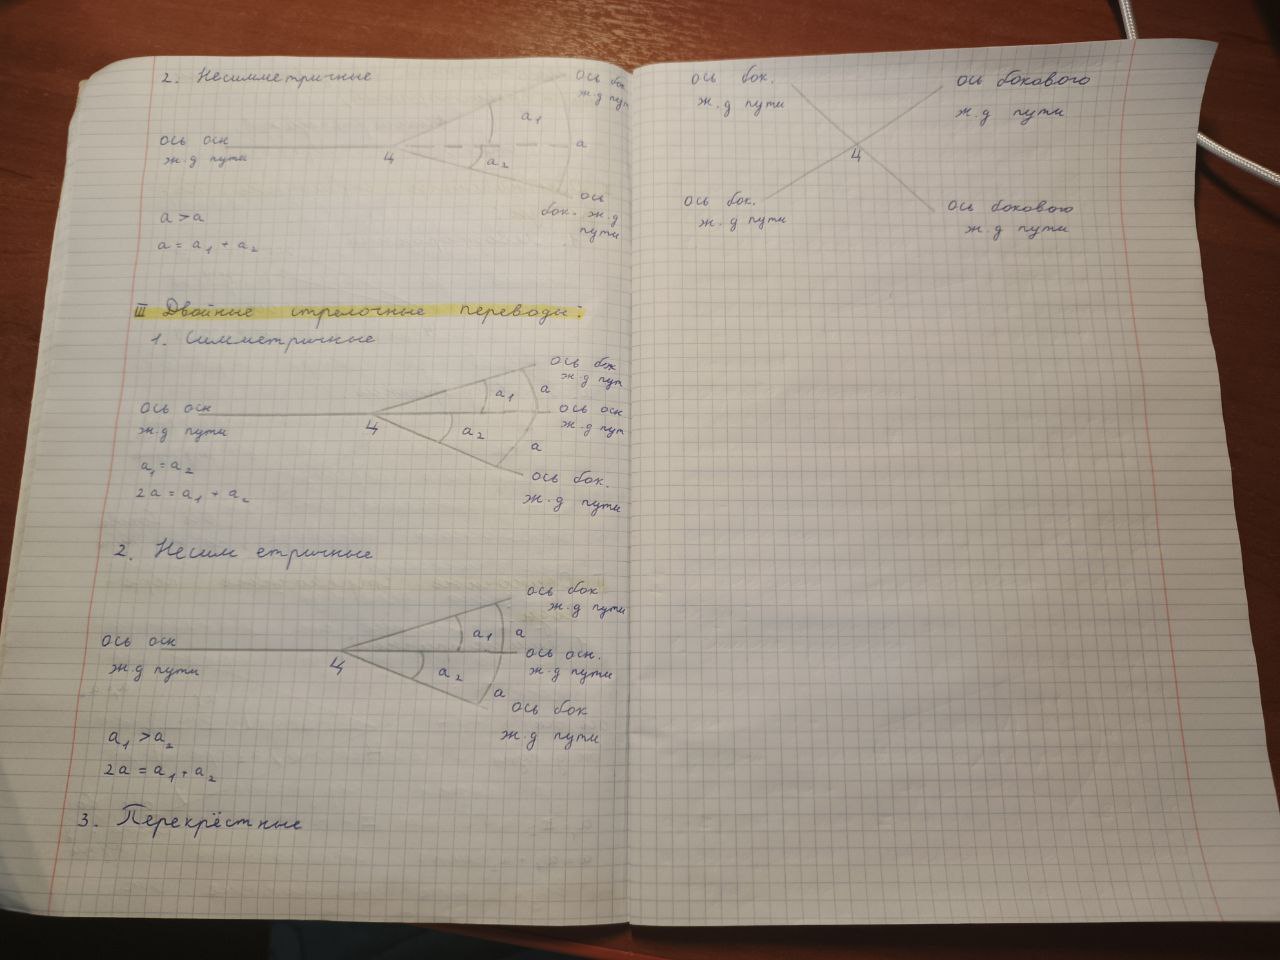 2. Несимметричные
ось бок
ж.д пут
a₁
ось осн
ж.д пути
Ц
a
a₂
ось
бок. ж.д
пути
a > a
a = a₁ + a₂
III Двойные стрелочные переводы:
1. Симметричные
ось бок
ж.д пут
a
a₁
ось осн
ж.д пути
Ц
ось осн
ж.д пут
a₂
a
ось бок.
ж.д пути
a₁ = a₂
2a = a₁ + a₂
2. Несим етричные
ось бок
ж.д пути
a₁
a
ось осн
ж.д пути
Ц
ось осн.
ж.д пути
a₂
a
ось бок
ж.д пути
a₁ > a₂
2a = a₁ + a₂
3. Перекрёстные
ось бок.
ж.д пути
ось бокового
ж.д пути
Ц
ось бок.
ж.д пути
ось бокового
ж.д пути